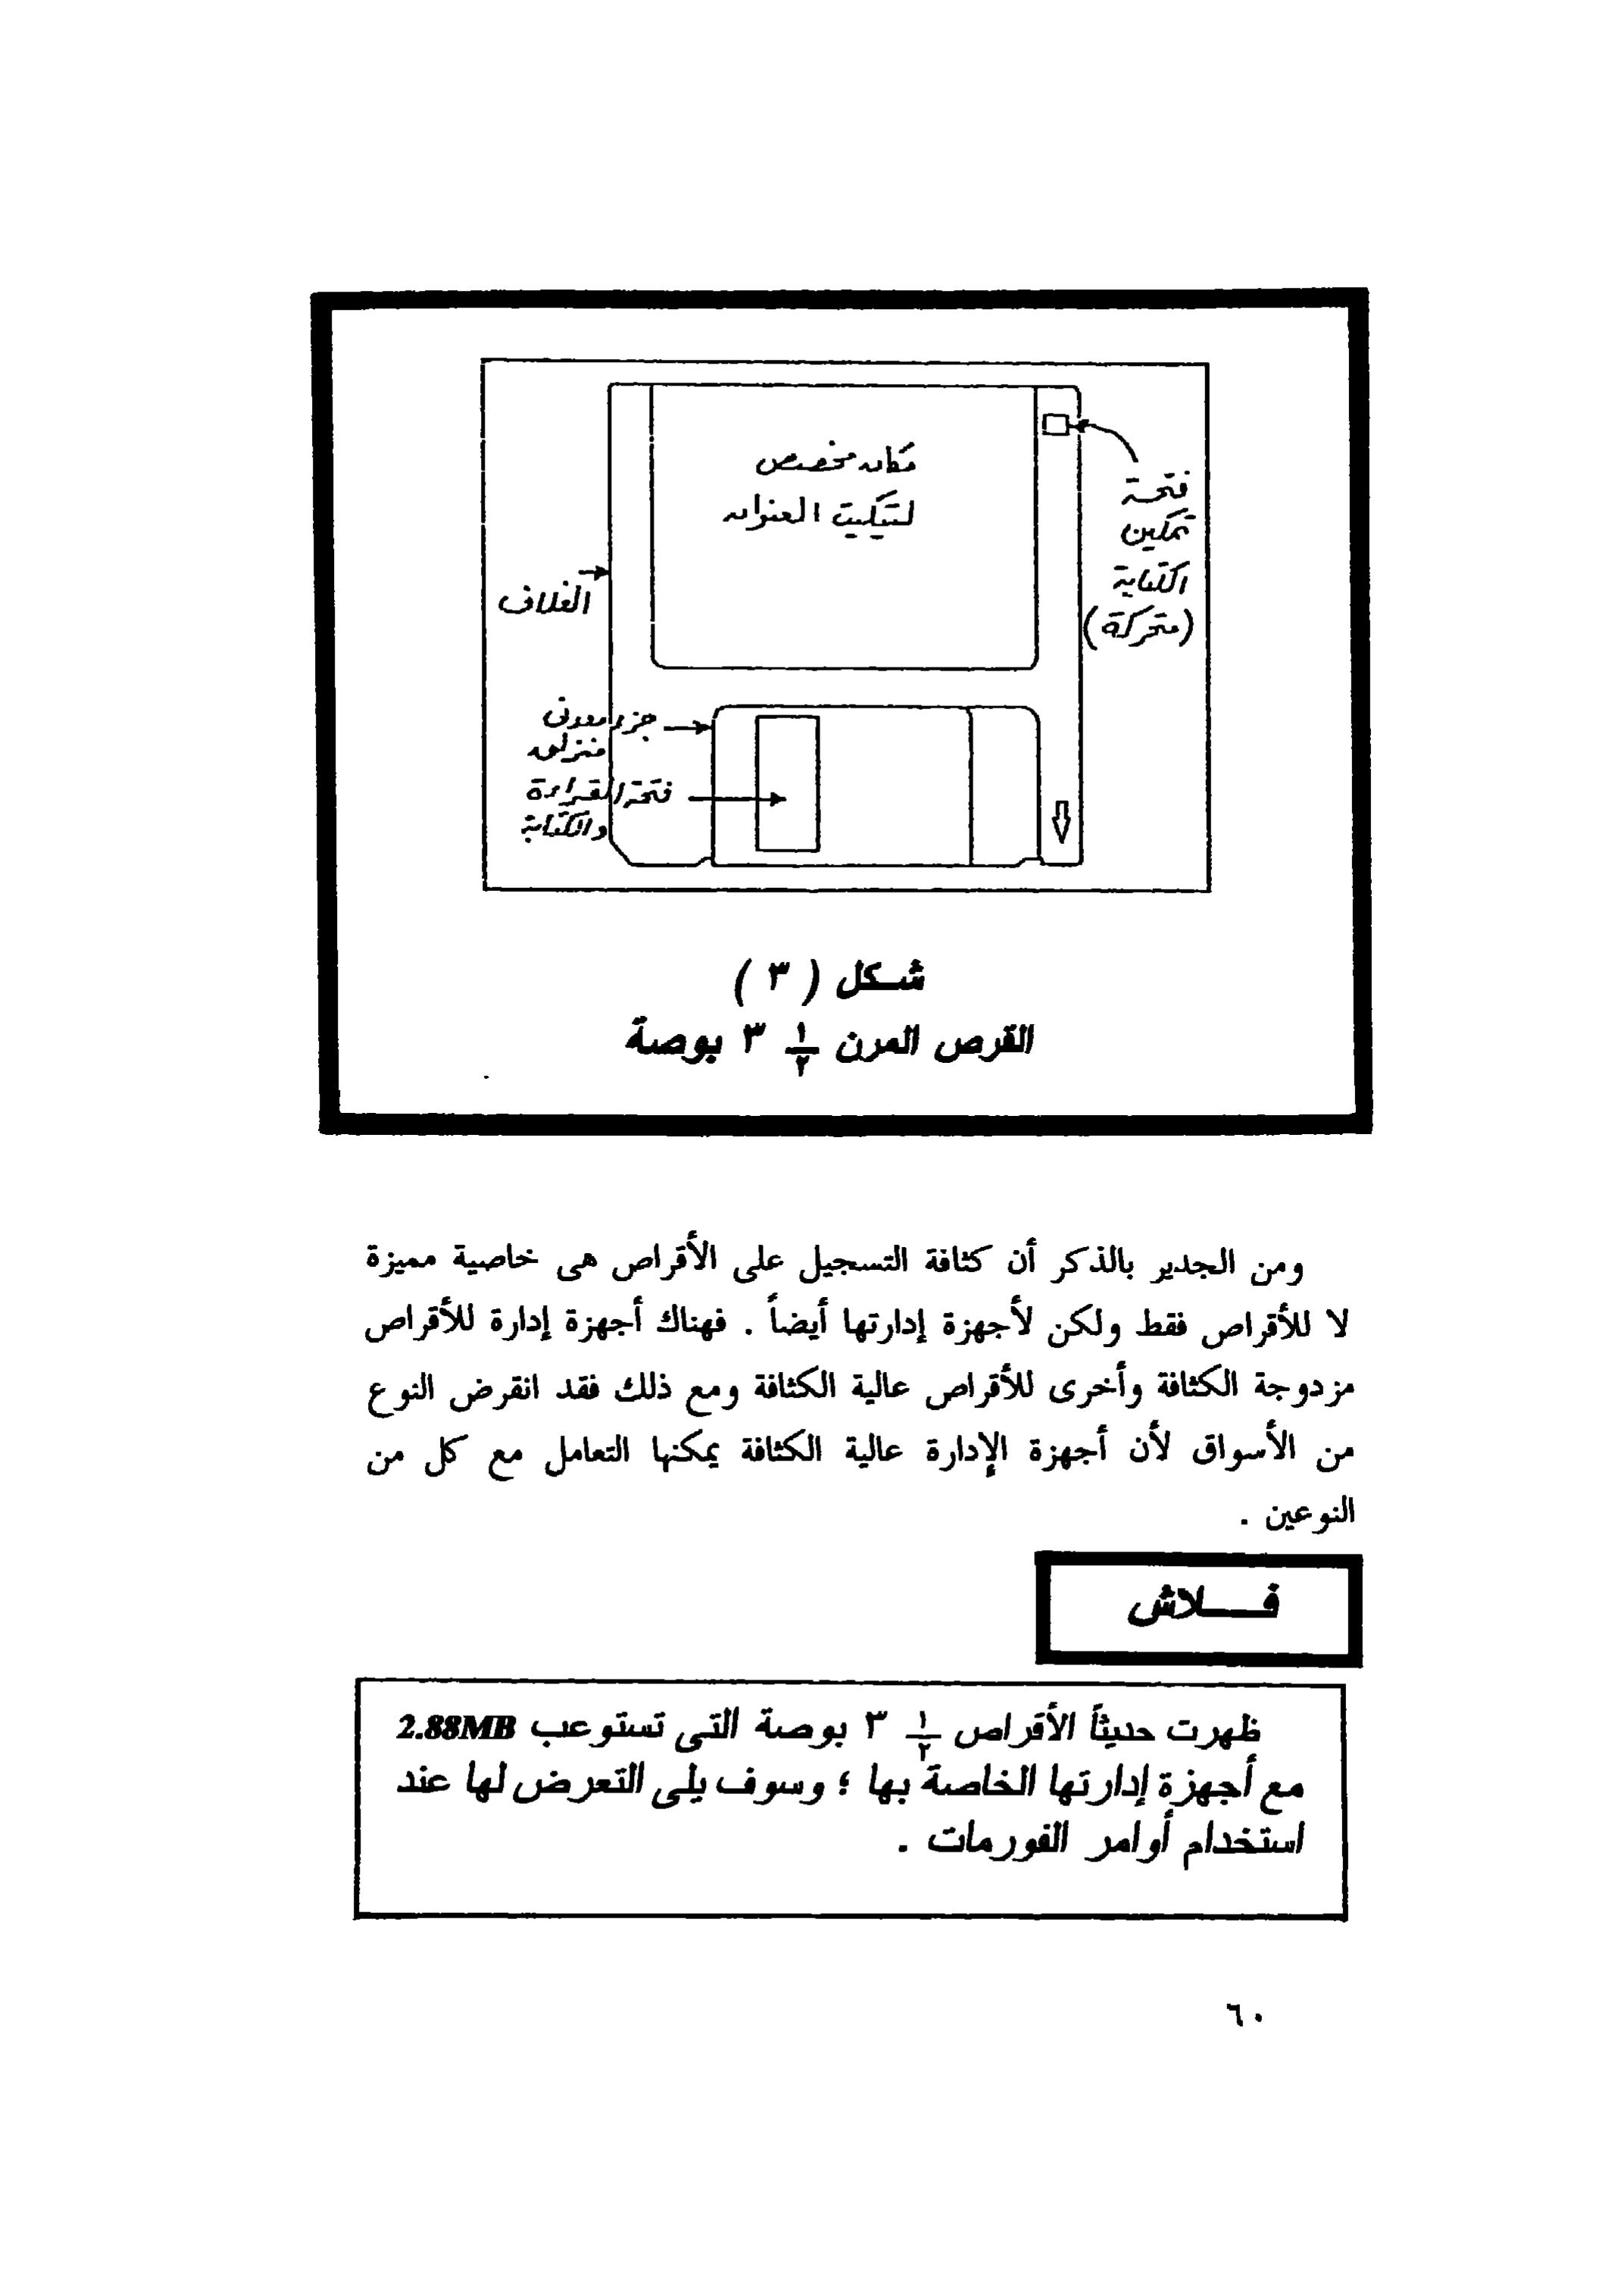 مكان مخصص
لتيكيت العنوان
فتحة
تمكين
الكتابة
(متحركة)
الغلاف
جزء معدنى
منزلق
فتحة القراءة
والكتابة
شكل ( ٣ )
القرص المرن ١/٢ ٣ بوصة
ومن الجدير بالذكر أن كثافة التسجيل على الأقراص هى خاصية مميزة
لا للأقراص فقط ولكن لأجهزة إدارتها أيضاً . فهناك أجهزة إدارة للأقراص
مزدوجة الكثافة وأخرى للأقراص عالية الكثافة ومع ذلك فقد انقرض النوع
من الأسواق لأن أجهزة الإدارة عالية الكثافة يمكنها التعامل مع كل من
النوعين .
فــلاش
ظهرت حديثاً الأقراص ١/٢ ٣ بوصة التى تستوعب 2.88MB
مع أجهزة إدارتها الخاصة بها ؛ وسوف يلى التعرض لها عند
استخدام أوامر الفورمات .
٦٠